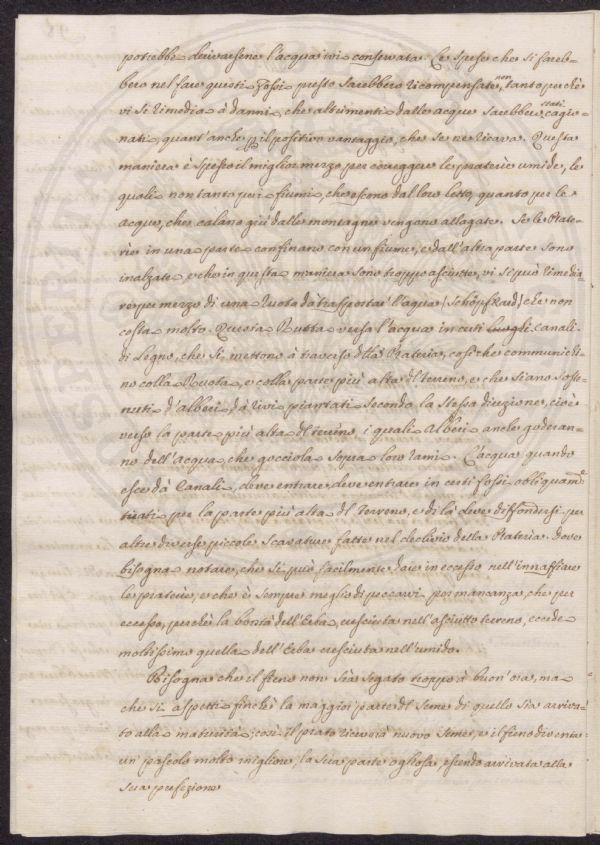 potrebbe derivarsene l'acqua ivi conservata. Le spese che si fareb-
bero nel fare questi Fossi presto sarebbero ricompensate, non tanto perchè
vi si rimedia à danni, che altrimenti dalle acque sarebbero stati cagio-
nati, quant'anche p il positivo vantaggio, che se ne ricava. Questa
maniera è spesso il miglior mezzo per correggere le praterie umide, le
quali non tanto per i fiumi, che escono dal loro letto, quanto per le
acque, che calano giù dalle montagne vengono allagate. Se le Prate-
rie in una parte confinano con un fiume, e dall'altra parte sono
inalzate, e che in questa maniera sono troppo asciutte, vi si può rimedia-
re per mezzo di una Ruota da trasportar l'acqua (Schöpf Rad) che non
costa molto. Questa Ruota versa l'acqua in certi luoghi canali
di Legno, che si mettono à traverso della Prateria, così che communichi-
no colla Ruota, e colla parte più alta del terreno, e che siano soste-
nuti d'alberi da rivi piantati secondo la stessa direzione, cioè
verso la parte più alta del terreno i quali Alberi anche goderan-
no dell'Acqua, che gocciola sopra loro rami. L'acqua quando
esce dà Canali, deve entrare, deve entrare in certi fossi obliquam.e
tirati per la parte più alta del Terreno, e di là deve diffondersi per
altre diverse piccole scavature fatte nel declivio della Prateria. Dove
bisogna notare, che si può facilmente dare in eccesso nell'innaffiare
le praterie, e che è sempre meglio di peccarvi per mancanza, che per
eccesso, perchè la bontà dell'Erba, cresciuta nell'asciutto terreno, eccede
moltissimo quella dell'Erba cresciuta nell'umido.
Bisogna che il fieno non sia segato troppo à buon'ora, ma
che si aspetti finchè la maggior parte del seme di quello sia arriva-
to alla maturità; così il prato riceverà nuovo seme, e il fieno diventa
un pascolo molto migliore, la sua parte ogliosa, essendo arrivata alla
sua perfezione